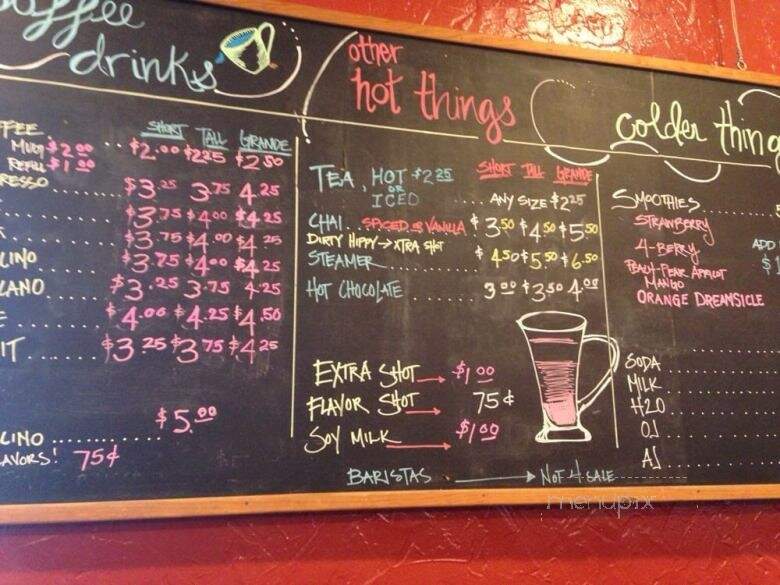 coffee
drinks
SHORT TALL GRANDE
MUG $2.00 $2.00 $2.25 $2.50
REFILL $1.00
$3.25 3.75 4.25
$3.75 $4.00 $4.25
$3.75 $4.00 $4.25
LINO $3.75 $4.00 $4.25
LANO $3.25 3.75 4.25
E $4.00 $4.25 $4.50
IT $3.25 $3.75 $4.25
$5.00
LINO
AVORS! 75¢
other
hot things
SHORT TALL GRANDE
TEA, HOT $2.25
OR
ICED ANY SIZE $2.25
CHAI SPICED OR VANILLA $3.50 $4.50 $5.50
DIRTY HIPPY → XTRA SHOT $4.50 $5.50 $6.50
STEAMER
HOT CHOCOLATE 3.00 $3.50 4.00
EXTRA SHOT → $1.00
FLAVOR SHOT → 75¢
SOY MILK → $1.00
BARISTAS → NOT 4 SALE
colder thing
SMOOTHIES
STRAWBERRY
4-BERRY ADD
PEACH-PEAR APRICOT $1
MANGO
ORANGE DREAMSICLE
SODA
MILK
H2O
OJ
AJ
menupix